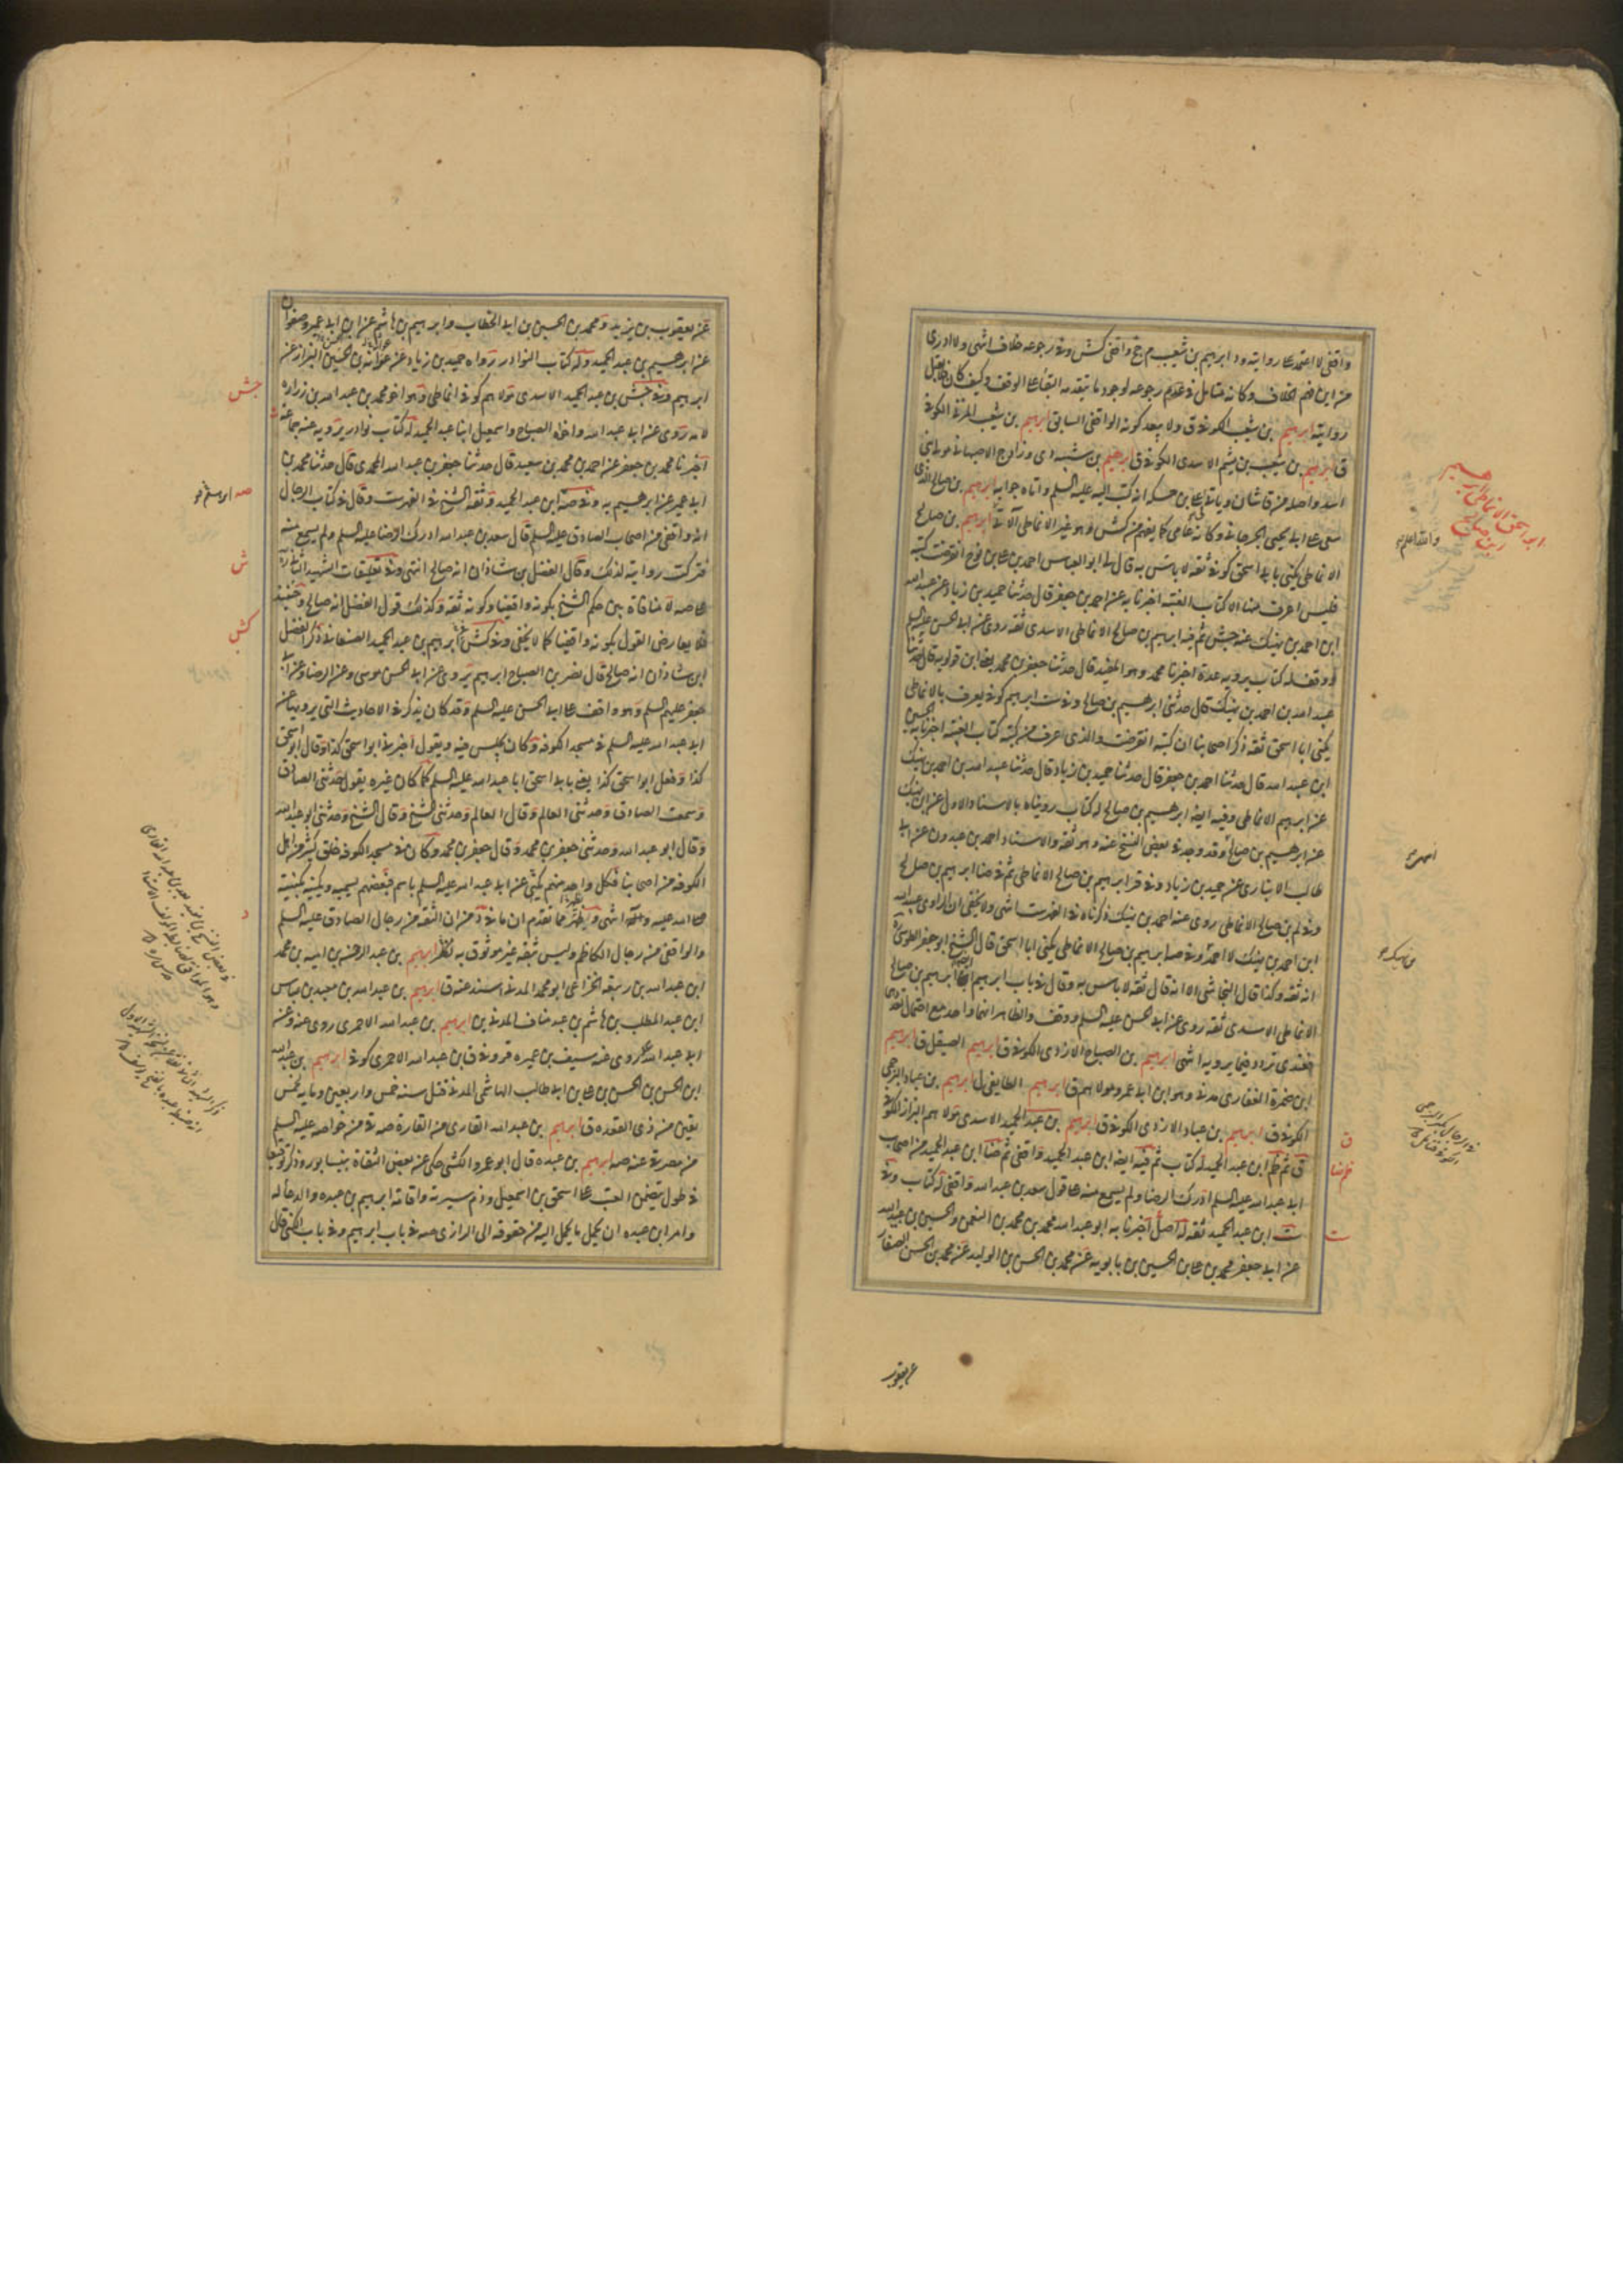 واقفي لا اعتمد على روايته ود ابرهيم بن شعيب م جخ واقفي كش وفي رجوعه خلاف انتهى ولا ادري
من اين فهم الخلاف وكانه متامل في عدم رجوعه لوجود ما يتقدمه البقاء على الوقف وكيف كان
روايته ابرهيم بن شعيب الكوفي ق ولا يبعد كونه الواقفي السابق ابرهيم بن شعيب المزني الكوفي
ق ابرهيم بن شعيب بن ميثم الاسدي الكوفي ق ابرهيم بن شيبه دي وزاد ج الاصبهاني مولى بني
اسد واصله من قاشان وياتي في علي بن حسكه انه كتب اليه عليه السلم واتاه جوابه ابرهيم بن صالح الذي
على ابي يحيى الجرجاني وكانه عامي كما يفهم من كش وهو غير الانماطي الاتي ابرهيم بن صالح
الانماطي يكنى بابي اسحق كوفي ثقه لا باس به قال لي ابو العباس احمد بن علي بن نوح انقرضت كتبه
فليس اعرف منها الا كتاب الغيبه اخبرنا به عن احمد بن جعفر قال حدثنا حميد بن زياد عن عبد الله
ابن احمد بن نهيك عنه جش ثم فيه ابرهيم بن صالح الانماطي الاسدي ثقه روى عن ابي الحسن عليه السلم
ووقف له كتاب يرويه عدة اخبرنا محمد وهو المفيد قال حدثنا جعفر بن محمد يعني ابن قولويه قال حدثنا
عبيد الله بن احمد بن نهيك قال حدثني ابرهيم بن صالح وفي ست ابرهيم كوفي يعرف بالانماطي
يكنى ابا اسحق ثقه ذكر اصحابنا ان كتبه انقرضت والذي اعرف من كتبه كتاب الغيبه اخبرنا به الحسين
ابن عبيد الله قال حدثنا احمد بن جعفر قال حدثنا حميد بن زياد قال حدثنا عبيد الله بن احمد بن نهيك
عن ابرهيم الانماطي وفيه ايضا ابرهيم بن صالح له كتاب رويناه بالاسناد الاول عن ابن نهيك
عن ابرهيم بن صالح وقد وجد في بعض النسخ عنه وهو ثقه والاسناد احمد بن عبدون عن ابي
طالب الانباري عن حميد بن زياد وفي قر ابرهيم بن صالح الانماطي ثم في ضا ابرهيم بن صالح
وفي لم بن صالح الانماطي روى عنه احمد بن نهيك ذكرناه في الفهرست انتهى ولا يخفى ان الراوي عبد الله
ابن احمد بن نهيك لا احمد وفي صه ابرهيم بن صالح الانماطي يكنى ابا اسحق قال الشيخ ابو جعفر الطوسي ره
انه ثقه وكذا قال النجاشي الا انه قال ثقه لا باس به وقال في باب ابرهيم ايضا ابرهيم بن صالح
الانماطي الاسدي ثقه روى عن ابي الحسن عليه السلم ووقف والظاهر انهما واحد مع احتمال تعددهما
فعندي تردد فيما يرويه انتهى ابرهيم بن الصباح الازدي الكوفي ق ابرهيم الصيقل ق ابرهيم
ابن ضمرة الغفاري مدني وهو ابن ابي عمرو مولاهم ق ابرهيم الطايفي ل ابرهيم بن عباد البرجمي
الكوفي ق ابرهيم بن عباد الازدي الكوفي ق ابرهيم بن عبد الحميد الاسدي مولاهم البزاز الكوفي
ق ثم ظم ابن عبد الحميد له كتاب ثم فيه ايضا ابن عبد الحميد واقفي ثم ضا ابن عبد الحميد من اصحاب
ابي عبد الله عليه السلم ادرك الرضا ولم يسمع منه على قول سعد بن عبد الله واقفي له كتاب وفي
ست ابن عبد الحميد ثقه له اصل اخبرنا به ابو عبد الله محمد بن محمد بن النعمن والحسين بن عبيد الله
عن ابي جعفر محمد بن علي بن الحسين بن بابويه عن محمد بن الحسن بن الوليد عن محمد بن الحسن الصفار
عن يعقوب
والله اعلم
ق
ظم ضا
ست
عن يعقوب بن يزيد ومحمد بن الحسين بن ابي الخطاب وابرهيم بن هاشم عن ابن ابي عمير وصفوان
عن ابرهيم بن عبد الحميد وله كتاب النوادر رواه حميد بن زياد عن عوانة بن الحسين البزاز عن
ابرهيم وفي جش بن عبد الحميد الاسدي مولاهم كوفي انماطي وهو اخو محمد بن عبد الله بن زرارة
لامه روى عن ابي عبد الله واخواه الصباح واسمعيل ابنا عبد الحميد له كتاب نوادر يرويه عنه جماعة
اخبرنا محمد بن جعفر عن احمد بن محمد بن سعيد قال حدثنا جعفر بن عبد الله المحمدي قال حدثنا محمد بن
ابي عمير عن ابرهيم به وفي صه ابن عبد الحميد وثقه الشيخ في الفهرست وقال في كتاب الرجال
انه واقفي من اصحاب الصادق عليه السلم قال سعد بن عبد الله ادرك الرضا عليه السلم ولم يسمع منه
فتركت روايته لذلك وقال الفضل بن شاذان انه صالح انتهى وفي تعليقات الشهيد الثاني ره
على صه لا منافاة بين حكم الشيخ بكونه واقفيا وكونه ثقه وكذلك قول الفضل انه صالح
فلا يعارض القول بكونه واقفيا كما لا يخفى وفي كش ابرهيم بن عبد الحميد الصنعاني ذكر الفضل
ابن شاذان انه صالح قال نصر بن الصباح ابرهيم يروى عن ابي الحسن موسى وعن الرضا وعن ابي
جعفر عليهم السلم وهو واقف على ابي الحسن عليه السلم وقد كان يذكر في الاحاديث التي يرويها عن
ابي عبد الله عليه السلم في مسجد الكوفه وكان يجلس فيه ويقول اخبرني ابو اسحق كذا وقال ابو اسحق
كذا وفعل ابو اسحق كذا يعني بابي اسحق ابا عبد الله عليه السلم كما كان غيره يقول حدثني الصادق
وسمعت الصادق وحدثني العالم وقال العالم وحدثني الشيخ وقال الشيخ وحدثني ابو عبد الله
وقال ابو عبد الله وحدثني جعفر بن محمد وقال جعفر بن محمد وكان في مسجد الكوفه خلق كثير من اهل
الكوفه من اصحابنا فكل واحد منهم يكنى عن ابي عبد الله عليه السلم باسم فبعضهم يسميه ويكنيه بكنيته
صلى الله عليه وآله انتهى ويظهر مما تقدم ان ما في د من ان الثقه من رجال الصادق عليه السلم
والواقفي من رجال الكاظم وليس بثقه غير موثوق به ابرهيم بن عبد الرحمن بن اميه بن محمد
ابن عبد الله بن ربيعه الخزاعي ابو محمد المدني اسند عنه ق ابرهيم بن عبد الله بن معبد بن عباس
ابن عبد المطلب بن هاشم بن عبد مناف المدني ين ابرهيم بن عبد الله الاحمري روى عنه وعن
ابي عبد الله روى عنه سيف بن عميره قر وفي ق بن عبد الله الاحمري كوفي ابرهيم بن عبد الله
ابن الحسن بن الحسن بن علي بن ابي طالب الهاشمي المدني قتل سنه خمس واربعين ومايه لخمس
بقين من ذي القعده ق ابرهيم بن عبد الله القاري من القارة صه في من خواصه عليه السلم
من مضر ي عنه صه ابرهيم بن عبده قال ابو عمرو الكشي حكى عن بعض الثقاة بنيسابور وذكر توقيعا
فيه طول يتضمن العتب على اسحق بن اسمعيل وذم سيرته واقامة ابرهيم بن عبده والدعا له
وامر ابن عبده ان يحمل ما يحمل اليه من حقوقه الى الرازي صه في باب ابرهيم وفي باب الكنى قال
جش
صه
ش
كش
د